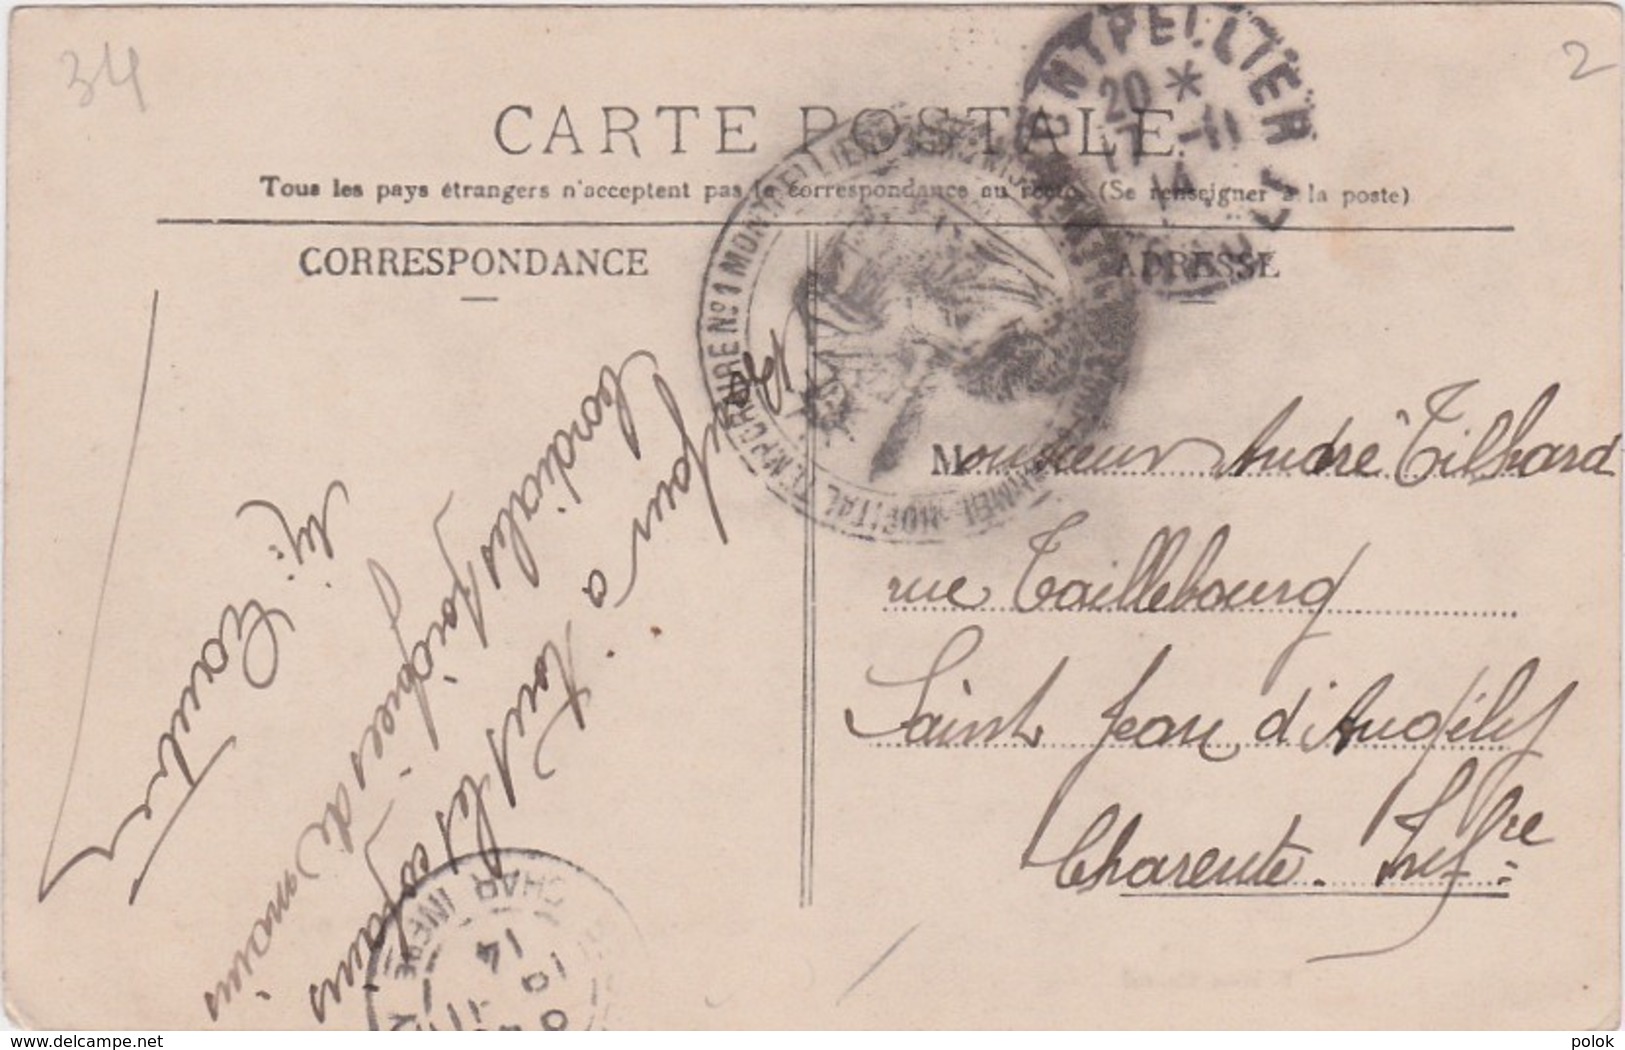 34
2
CARTE POSTALE
Tous les pays étrangers n'acceptent pas la correspondance au recto (Se renseigner à la poste)
CORRESPONDANCE
ADRESSE
MONTPELLIER
20 *
17 -11
14
HOPITAL TEMPORAIRE No 1 MONTPELLIER
Cordiales poignées de mains
à tous les copains
Monsieur André Tilhard
rue Taillebourg
Saint Jean d'Angély
Charente. Infre
CHAR INFRE
14
delcampe.net
polok